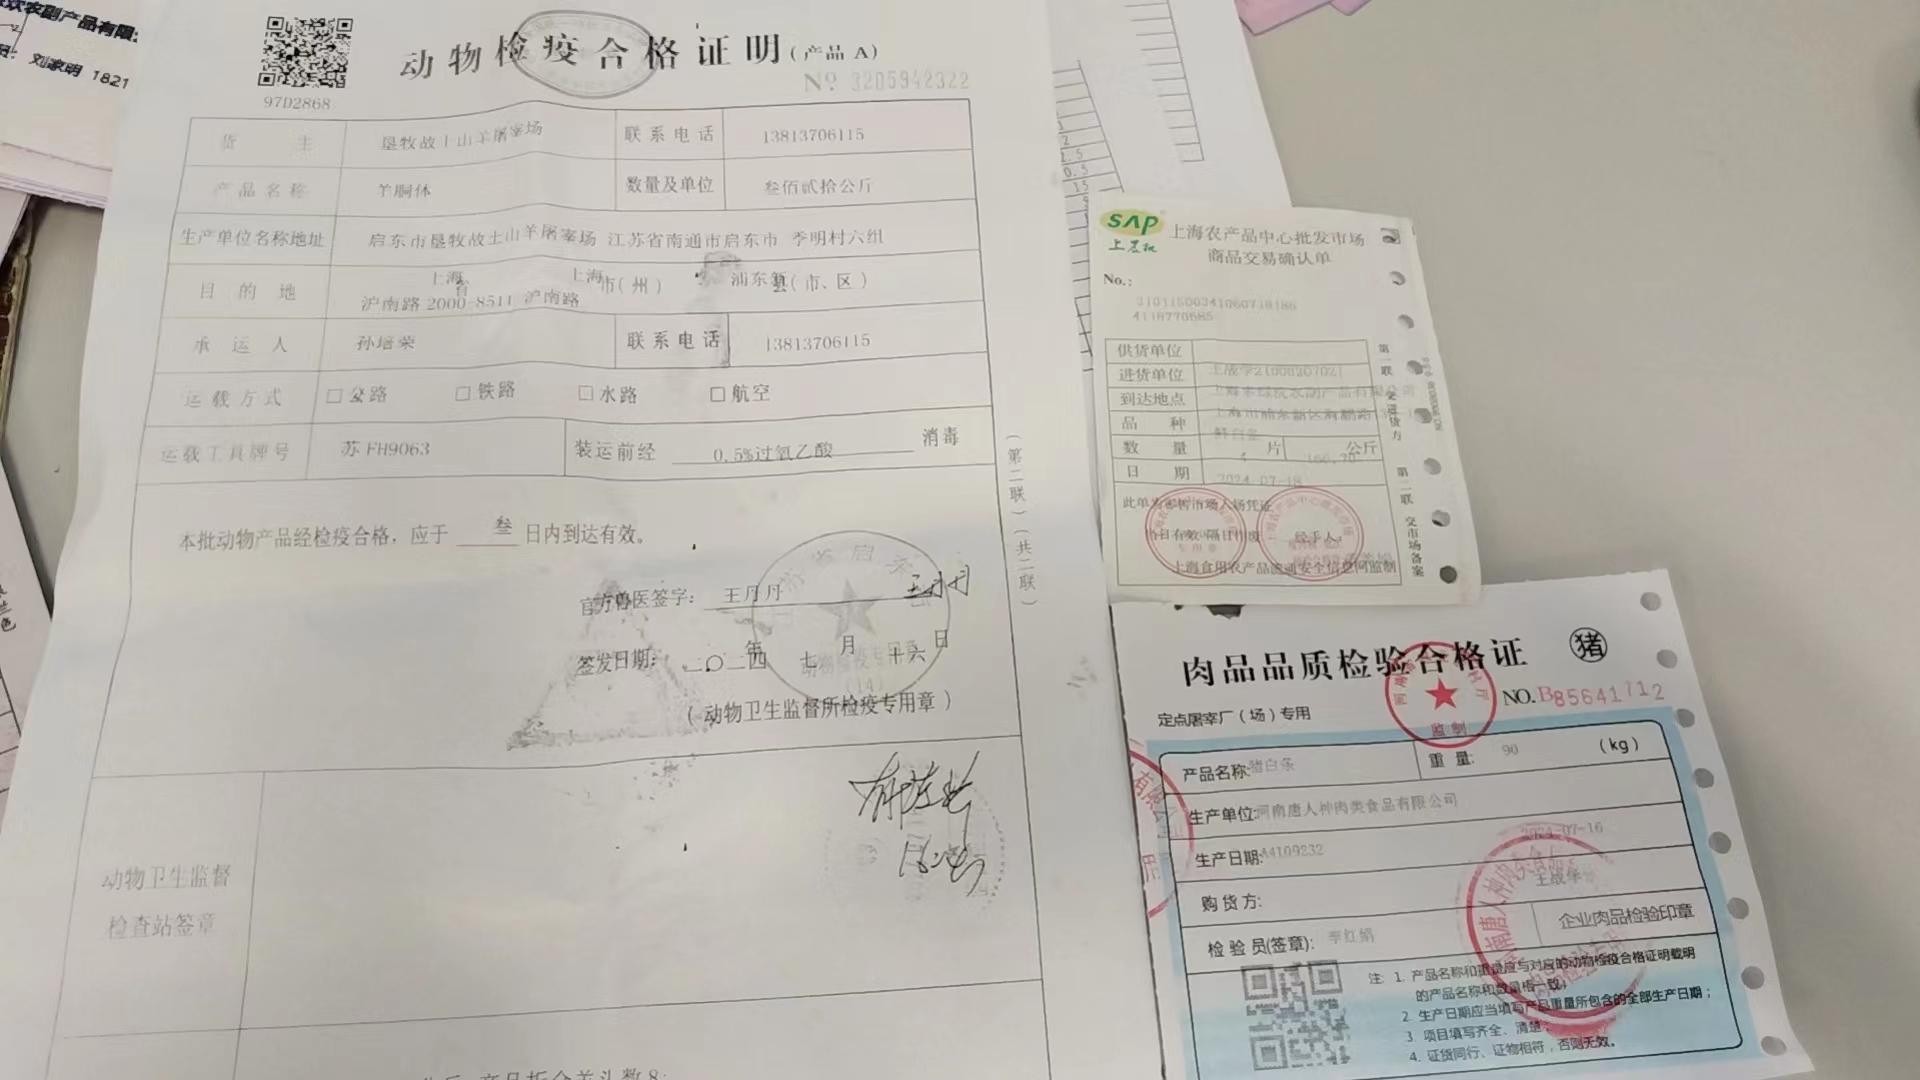 农副产品有限
刘家明 1821
97D2868
动物检疫合格证明(产品 A)
№ 3205942322
货主 垦牧故土山羊屠宰场 联系电话 13813706115
产品名称 羊胴体 数量及单位 叁佰贰拾公斤
生产单位名称地址 启东市垦牧故土山羊屠宰场 江苏省南通市启东市 季明村六组
目的地 上海省 上海市(州) 浦东新县(市、区)
沪南路 2000-8511 沪南路
承运人 孙培荣 联系电话 13813706115
运载方式 □公路 □铁路 □水路 □航空
运载工具牌号 苏 FH9063 装运前经 0.5%过氧乙酸 消毒
本批动物产品经检疫合格，应于 叁 日内到达有效。
官方兽医签字： 王丹丹 王丹丹
签发日期： 二〇二四 年 七 月 十六 日
(动物卫生监督所检疫专用章)
动物卫生监督
检查站签章
(第二联)(共二联)
产品折合羊头数8;
SAP
上农批
上海农产品中心批发市场
商品交易确认单
No.:
4118770685
供货单位
进货单位
到达地点
品种
数量 4 片 公斤
日期 2024-07-18
此单为零售市场入场凭证
当日有效 隔日作废 经手人：
上海食用农产品流通安全信息网监制
第一联 交进货方
第二联 交市场备案
肉品品质检验合格证 猪
定点屠宰厂(场)专用
NO. B85641712
监制
产品名称: 猪白条 重量: 90 (kg)
生产单位: 河南唐人神肉类食品有限公司
2024-07-16
生产日期: A4109232
王战华
购货方:
检验员(签章): 李红娟 企业肉品检验印章
注: 1. 产品名称和重量应与对应的动物检疫合格证明载明
的产品名称和数量相一致;
2. 生产日期应当填写产品重量所包含的全部生产日期;
3. 项目填写齐全、清楚;
4. 证货同行、证物相符，否则无效。